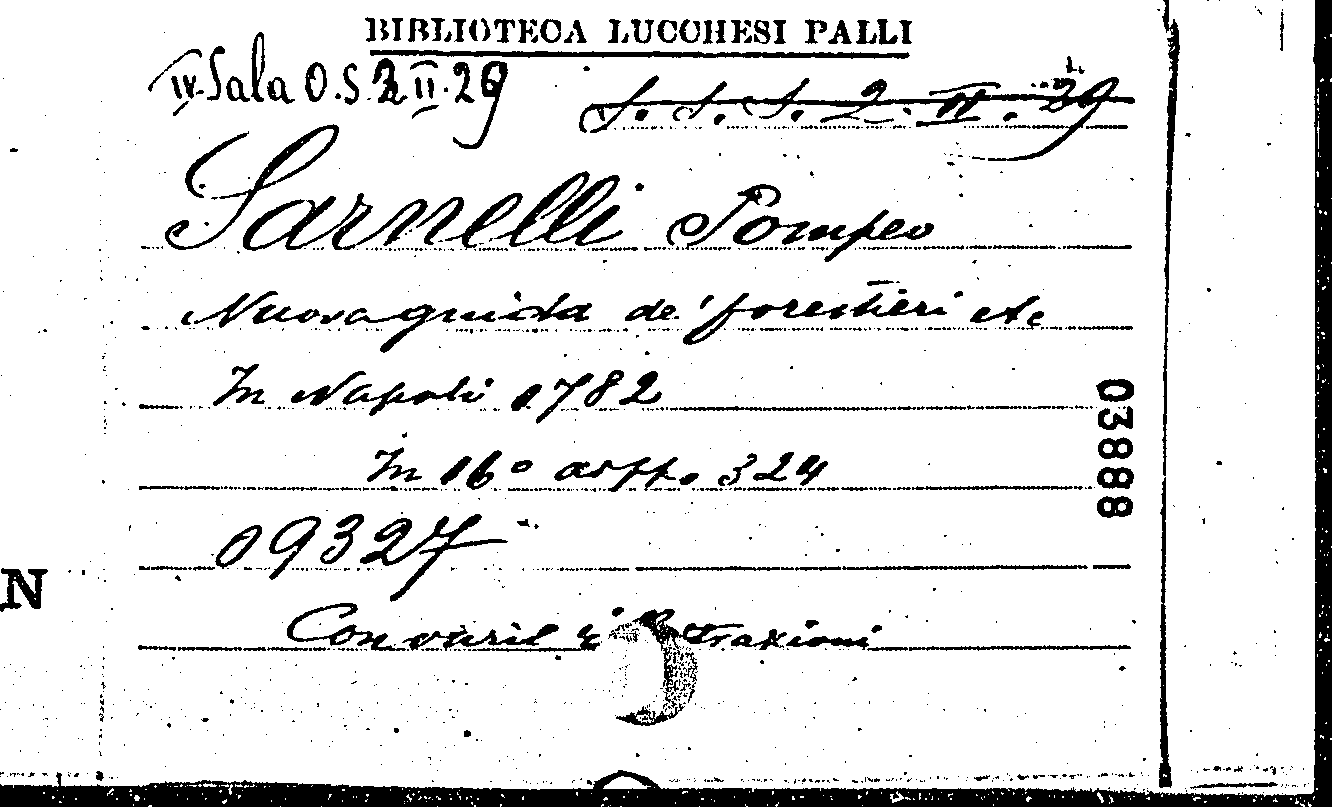 BIBLIOTECA LUCCHESI PALLI
IV. Sala O.S. 2. II. 29
S. S. S. 2. II. 29
Sarnelli Pompeo
Nuova guida de' forestieri etc
In Napoli 1782
In 16° di pp. 324
09327
Con varie illustrazioni
03888
N